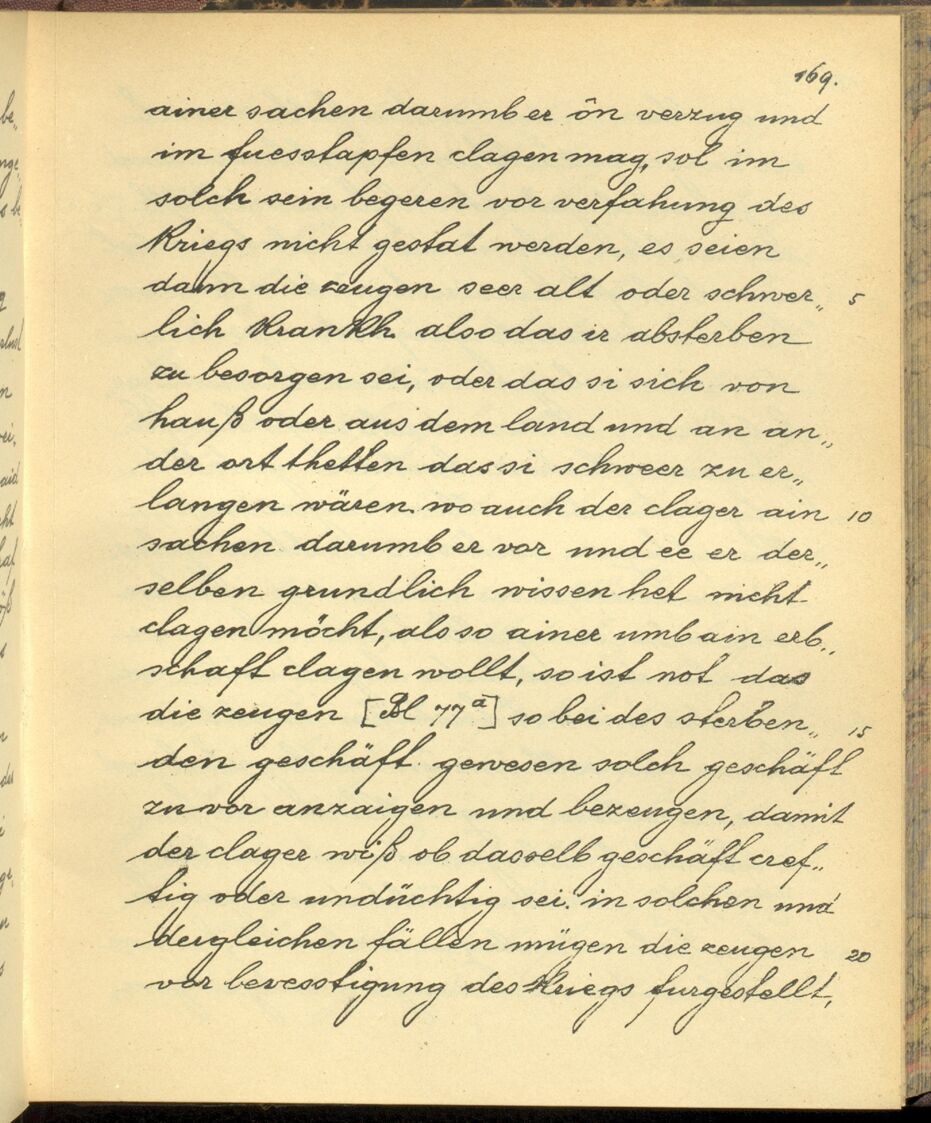 169.
ainer sachen darumb er ön verzug und
im fuesstapfen clagen mag, sol im
solch sein begeren vor verfahung des
Kriegs nicht gestat werden, es seien
dann die zeugen seer alt oder schwer„ 5
lich Krankh also das ir absterben
zu besorgen sei, oder das si sich von
hauß oder aus dem land und an an„
der ort thetten das si schweer zu er„
langen wären. wo auch der clager ain 10
sachen darumb er vor und ee er der„
selben grundlich wissen het nicht
clagen möcht, als so ainer umb ain erb„
schaft clagen wollt, so ist not das
die zeugen [Bl 77ª] so bei des sterben„ 15
den geschäft gewesen solch geschäft
zu vor anzaigen und bezeugen, damit
der clager wiß ob dasselb geschäft cref„
tig oder undüchtig sei. in solchen und
dergleichen fällen mügen die zeugen 20
vor bevesstigung des Kriegs furgestellt,